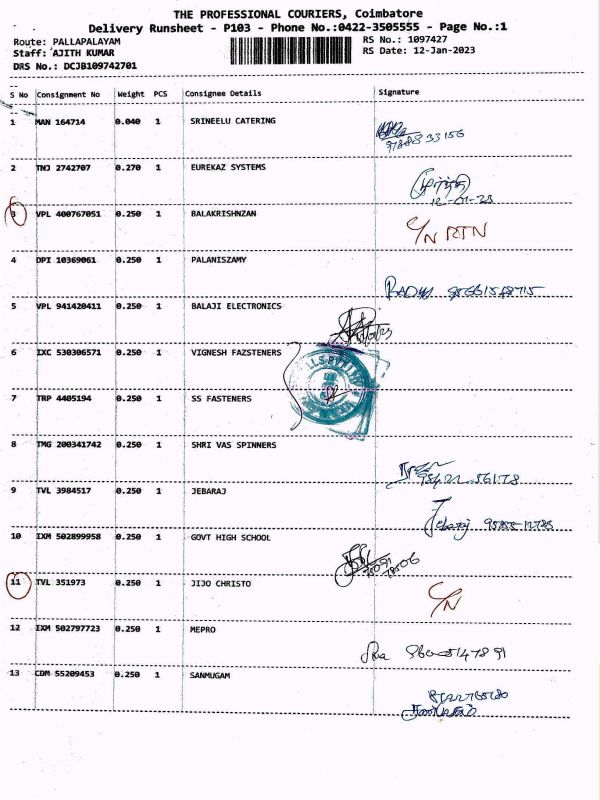 THE PROFESSIONAL COURIERS, Coimbatore
Delivery Runsheet - P103 - Phone No.:0422-3505555 - Page No.:1
Route: PALLAPALAYAM RS No.: 1097427
Staff: AJITH KUMAR RS Date: 12-Jan-2023
DRS No.: DCJB109742701
S No Consignment No Weight PCS Consignee Details Signature
1 MAN 164714 0.040 1 SRINEELU CATERING
2 TNJ 2742707 0.270 1 EUREKAZ SYSTEMS
12-01-23
3 VPL 400767051 0.250 1 BALAKRISHNZAN C/N RTN
4 DPI 10369061 0.250 1 PALANISZAMY
5 VPL 941420411 0.250 1 BALAJI ELECTRONICS
6 IXC 530306571 0.250 1 VIGNESH FAZSTENERS
7 TRP 4405194 0.250 1 SS FASTENERS
8 TMG 200341742 0.250 1 SHRI VAS SPINNERS
9 TVL 3984517 0.250 1 JEBARAJ
Jebaraj
10 IXM 502899958 0.250 1 GOVT HIGH SCHOOL
11 TVL 351973 0.250 1 JIJO CHRISTO C/N
12 IXM 502797723 0.250 1 MEPRO
13 CDM 55209453 0.250 1 SANMUGAM